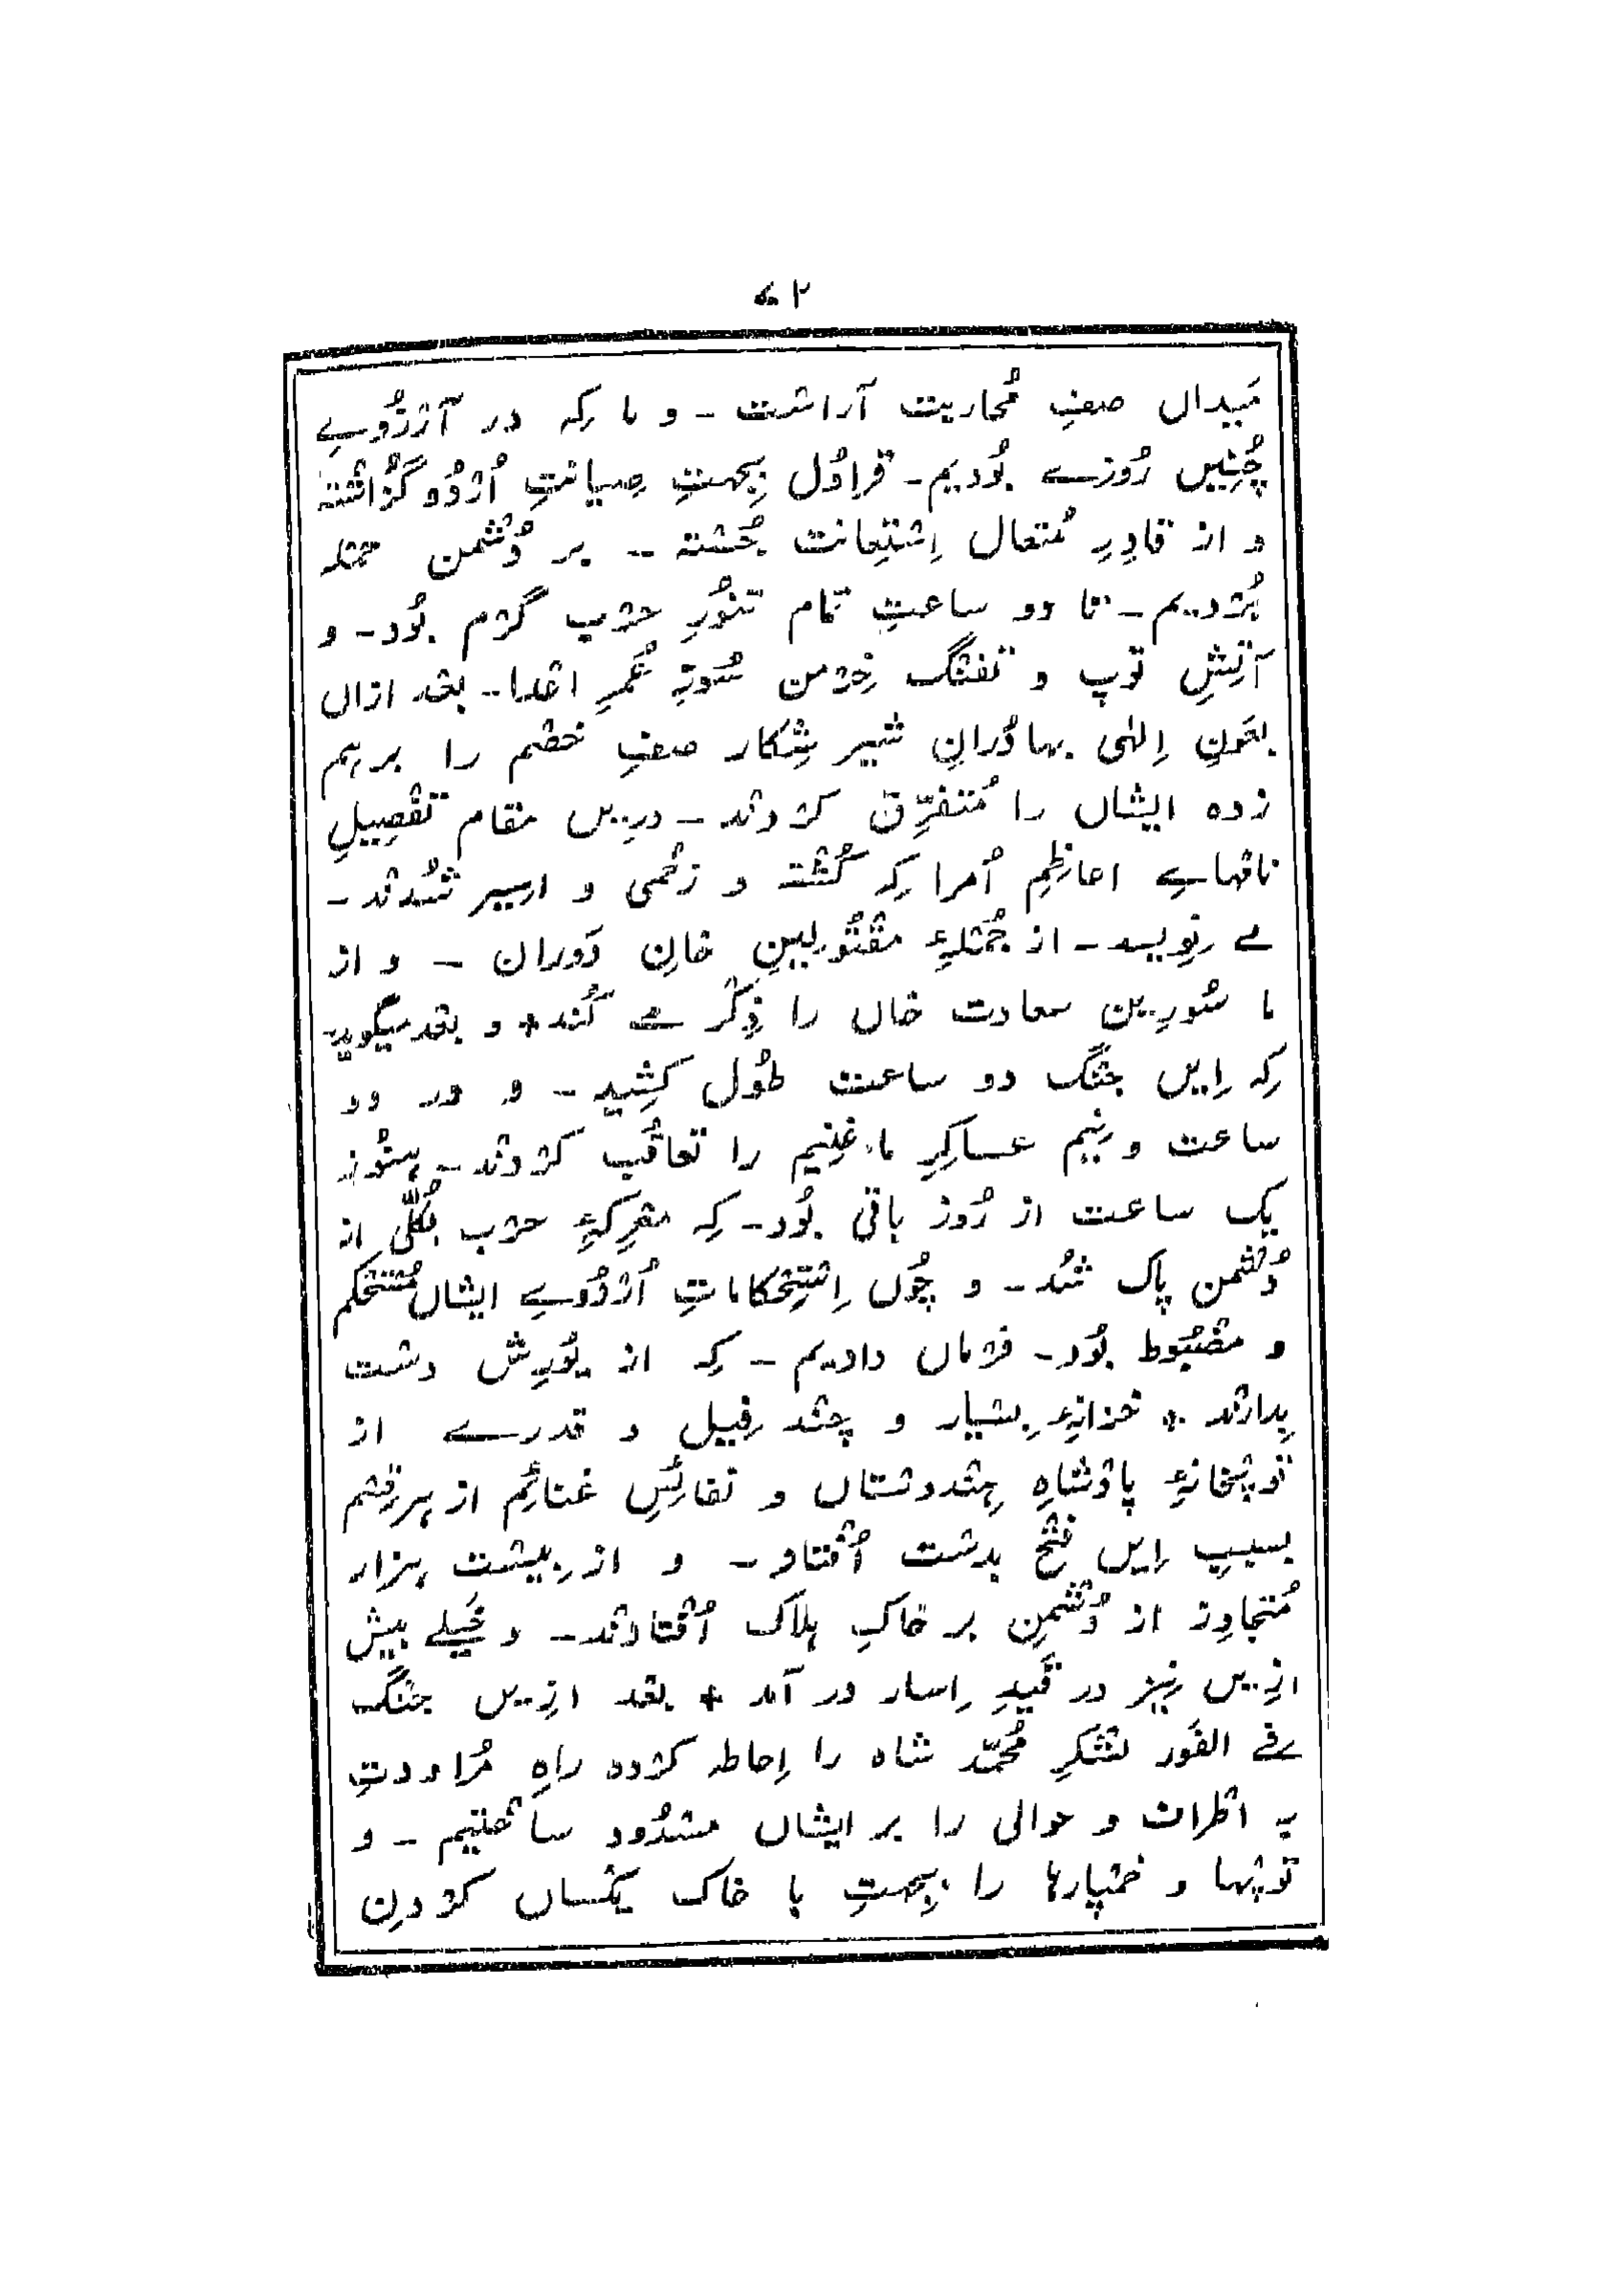 ۷۲
مَیدان صفِ مُحاربت آراست - و ما کِہ در آرزُوے
چُنِیں رُوزے بُودیم - قراوُل بِجہتِ صِیانتِ اُرْدُو گُزاشتہ
و از قادِرِ مُتعال اِسْتِعانت جُستہ - بر دُشْمن حملہ
بُرْدیم - تا دو ساعتِ تمام تنُورِ حرْب گرْم بُود - و
آتِشِ توپ و تفنْگ خِرْمن سُوزِ عُمرِ اعْدا - بعْد ازاں
بعَونِ اِلٰہی بہادُرانِ شیر شِکار صفِ خصْم را برہم
زدہ ایشاں را مُتفرِّق کرْدنْد - درِیں مقام تفْصِیلِ
نامْہاے اعاظِمِ اُمرا کِہ کُشْتہ و زخْمی و اسِیر شُدنْد -
مے نِویسد - از جُمْلۂِ مقْتُولِینِ خانِ دَوران - و از
ماسُورِین سعادت خاں را ذِکْر مے کُند + و بعْد میگوید
کِہ اِیں جنْگ دو ساعت طُول کشِید - و در دو
ساعت و نِیم عساکِرِ ما غنِیم را تعاقُب کرْدنْد - ہنُوز
یک ساعت از رُوز باقی بُود - کِہ معْرِکۂِ حرْب بُکلّی از
دُشْمن پاک شُد - و چُوں اِسْتِحْکاماتِ اُرْدُوے ایشاں مُسْتحْکم
و مضْبُوط بُود - فرْماں دادیم - کِہ از یُورِش دسْت
بِدارنْد * خزانۂِ بِسْیار و چنْد فِیل و قدرے از
توپْخانۂِ پادْشاہِ ہِنْدوسْتاں و نفائِسِ غنائِم از ہر قِسْم
بسببِ اِیں فتْح بدسْت اُفْتاد - و از بِیسْت ہزار
مُتجاوِز از دُشْمن بر خاکِ ہلاک اُفْتادنْد - و خَیلے بیش
ازِیں نِیز در قَیدِ اِسار در آمد + بعْد ازِیں جنْگ
فے الفَور لشْکرِ مُحمّد شاہ را اِحاطہ کرْدہ راہِ مُراودتِ
بہ اطْراف و حوالی را بر ایشاں مسْدُود ساخْتیم - و
توپْہا و خمْپارہا را بِجہتِ با خاک یکْساں کرْدنِ